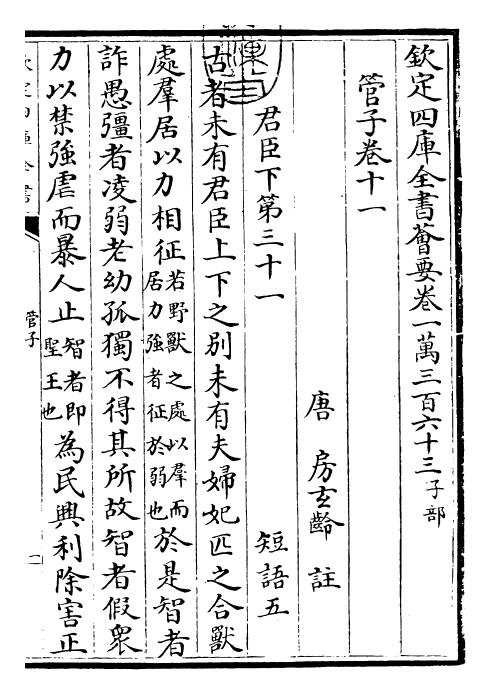 欽定四庫全書薈要卷一萬三百六十三子部
管子卷十一
唐 房玄齡 註
君臣下第三十一 短語五
古者未有君臣上下之別未有夫婦妃匹之合獸
處羣居以力相征若野獸之處以羣而居力強者征於弱也於是智者
詐愚彊者凌弱老幼孤獨不得其所故智者假衆
力以禁強虐而暴人止智者即聖王也為民興利除害正
管子